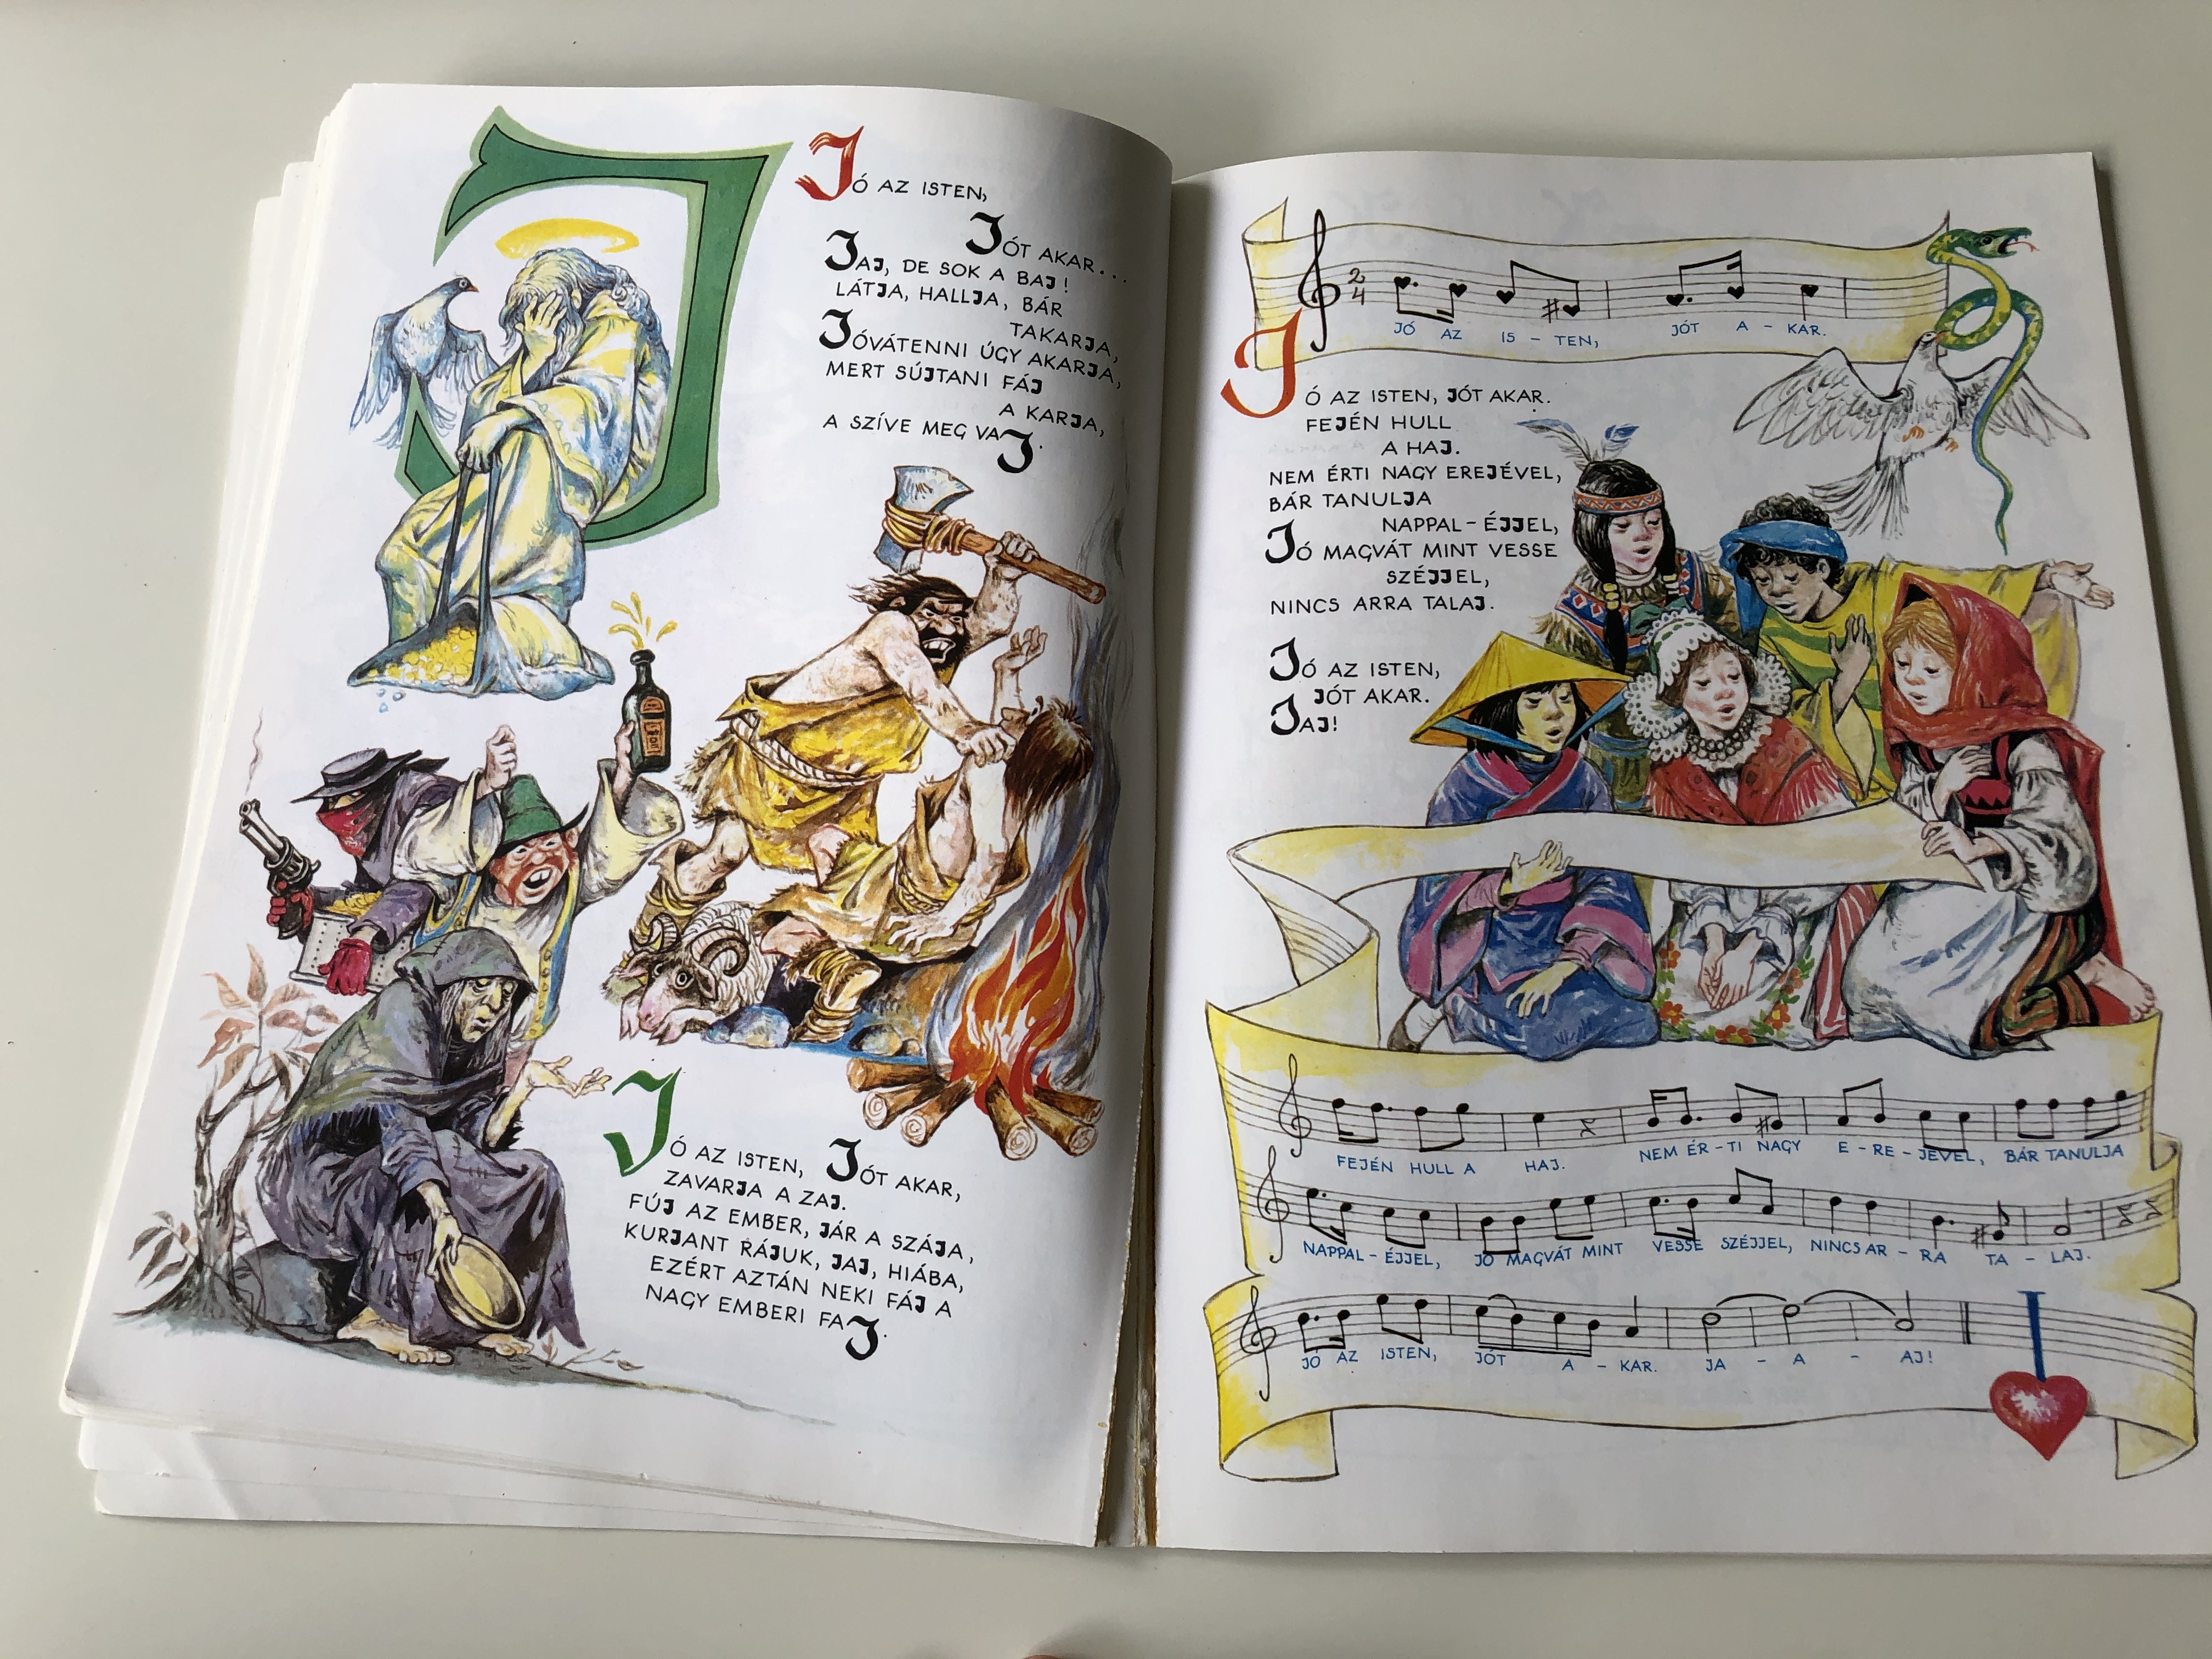 JÓ AZ ISTEN,
JÓT AKAR...
JAJ, DE SOK A BAJ!
LÁTJA, HALLJA, BÁR
TAKARJA,
JÓVÁTENNI ÚGY AKARJA,
MERT SÚJTANI FÁJ
A KARJA,
A SZÍVE MEG VAJ.
JÓ AZ ISTEN, JÓT AKAR,
ZAVARJA A ZAJ.
FÚJ AZ EMBER, JÁR A SZÁJA,
KURJANT RÁJUK, JAJ, HIÁBA,
EZÉRT AZTÁN NEKI FÁJ A
NAGY EMBERI FAJ.
2
4
JÓ AZ IS - TEN, JÓT A - KAR.
JÓ AZ ISTEN, JÓT AKAR.
FEJÉN HULL
A HAJ.
NEM ÉRTI NAGY EREJÉVEL,
BÁR TANULJA
NAPPAL-ÉJJEL,
JÓ MAGVÁT MINT VESSE
SZÉJJEL,
NINCS ARRA TALAJ.
JÓ AZ ISTEN,
JÓT AKAR.
JAJ!
FEJÉN HULL A HAJ. NEM ÉR-TI NAGY E-RE-JÉVEL, BÁR TANULJA
NAPPAL-ÉJJEL, JÓ MAGVÁT MINT VESSE SZÉJJEL, NINCS AR-RA TA-LAJ.
JÓ AZ ISTEN, JÓT A - KAR. JA - A - AJ!